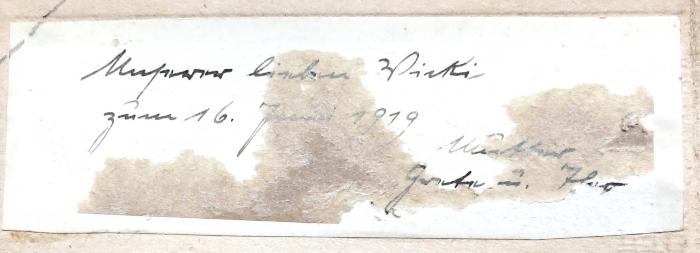 Unserer lieben Vicki
zum 16. Juni 1919
Mutter
Grete u. Ilse